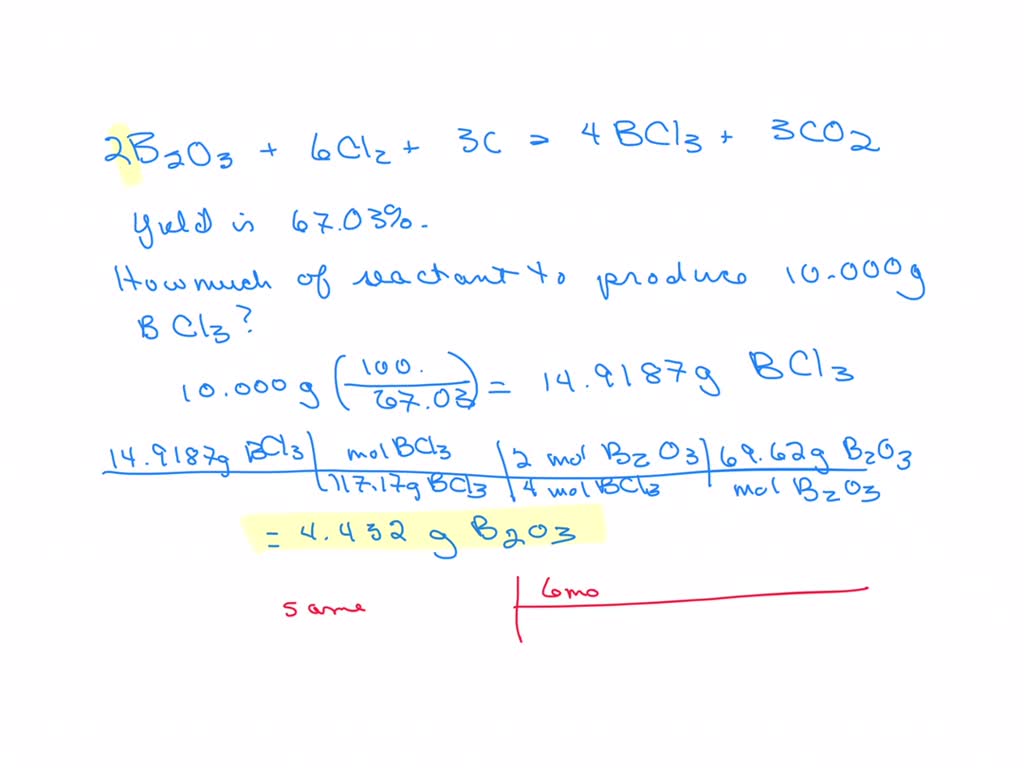 2B₂O₃ + 6Cl₂ + 3C = 4BCl₃ + 3CO₂
Yield is 67.03%.
How much of reactant to produce 10.000g
BCl₃?
10.000g (100. / 67.03) = 14.9187g BCl₃
14.9187g BCl₃ | mol BCl₃ | 2 mol B₂O₃ | 69.62g B₂O₃
117.17g BCl₃ | 4 mol BCl₃ | mol B₂O₃
= 4.432 g B₂O₃
same | 6mo